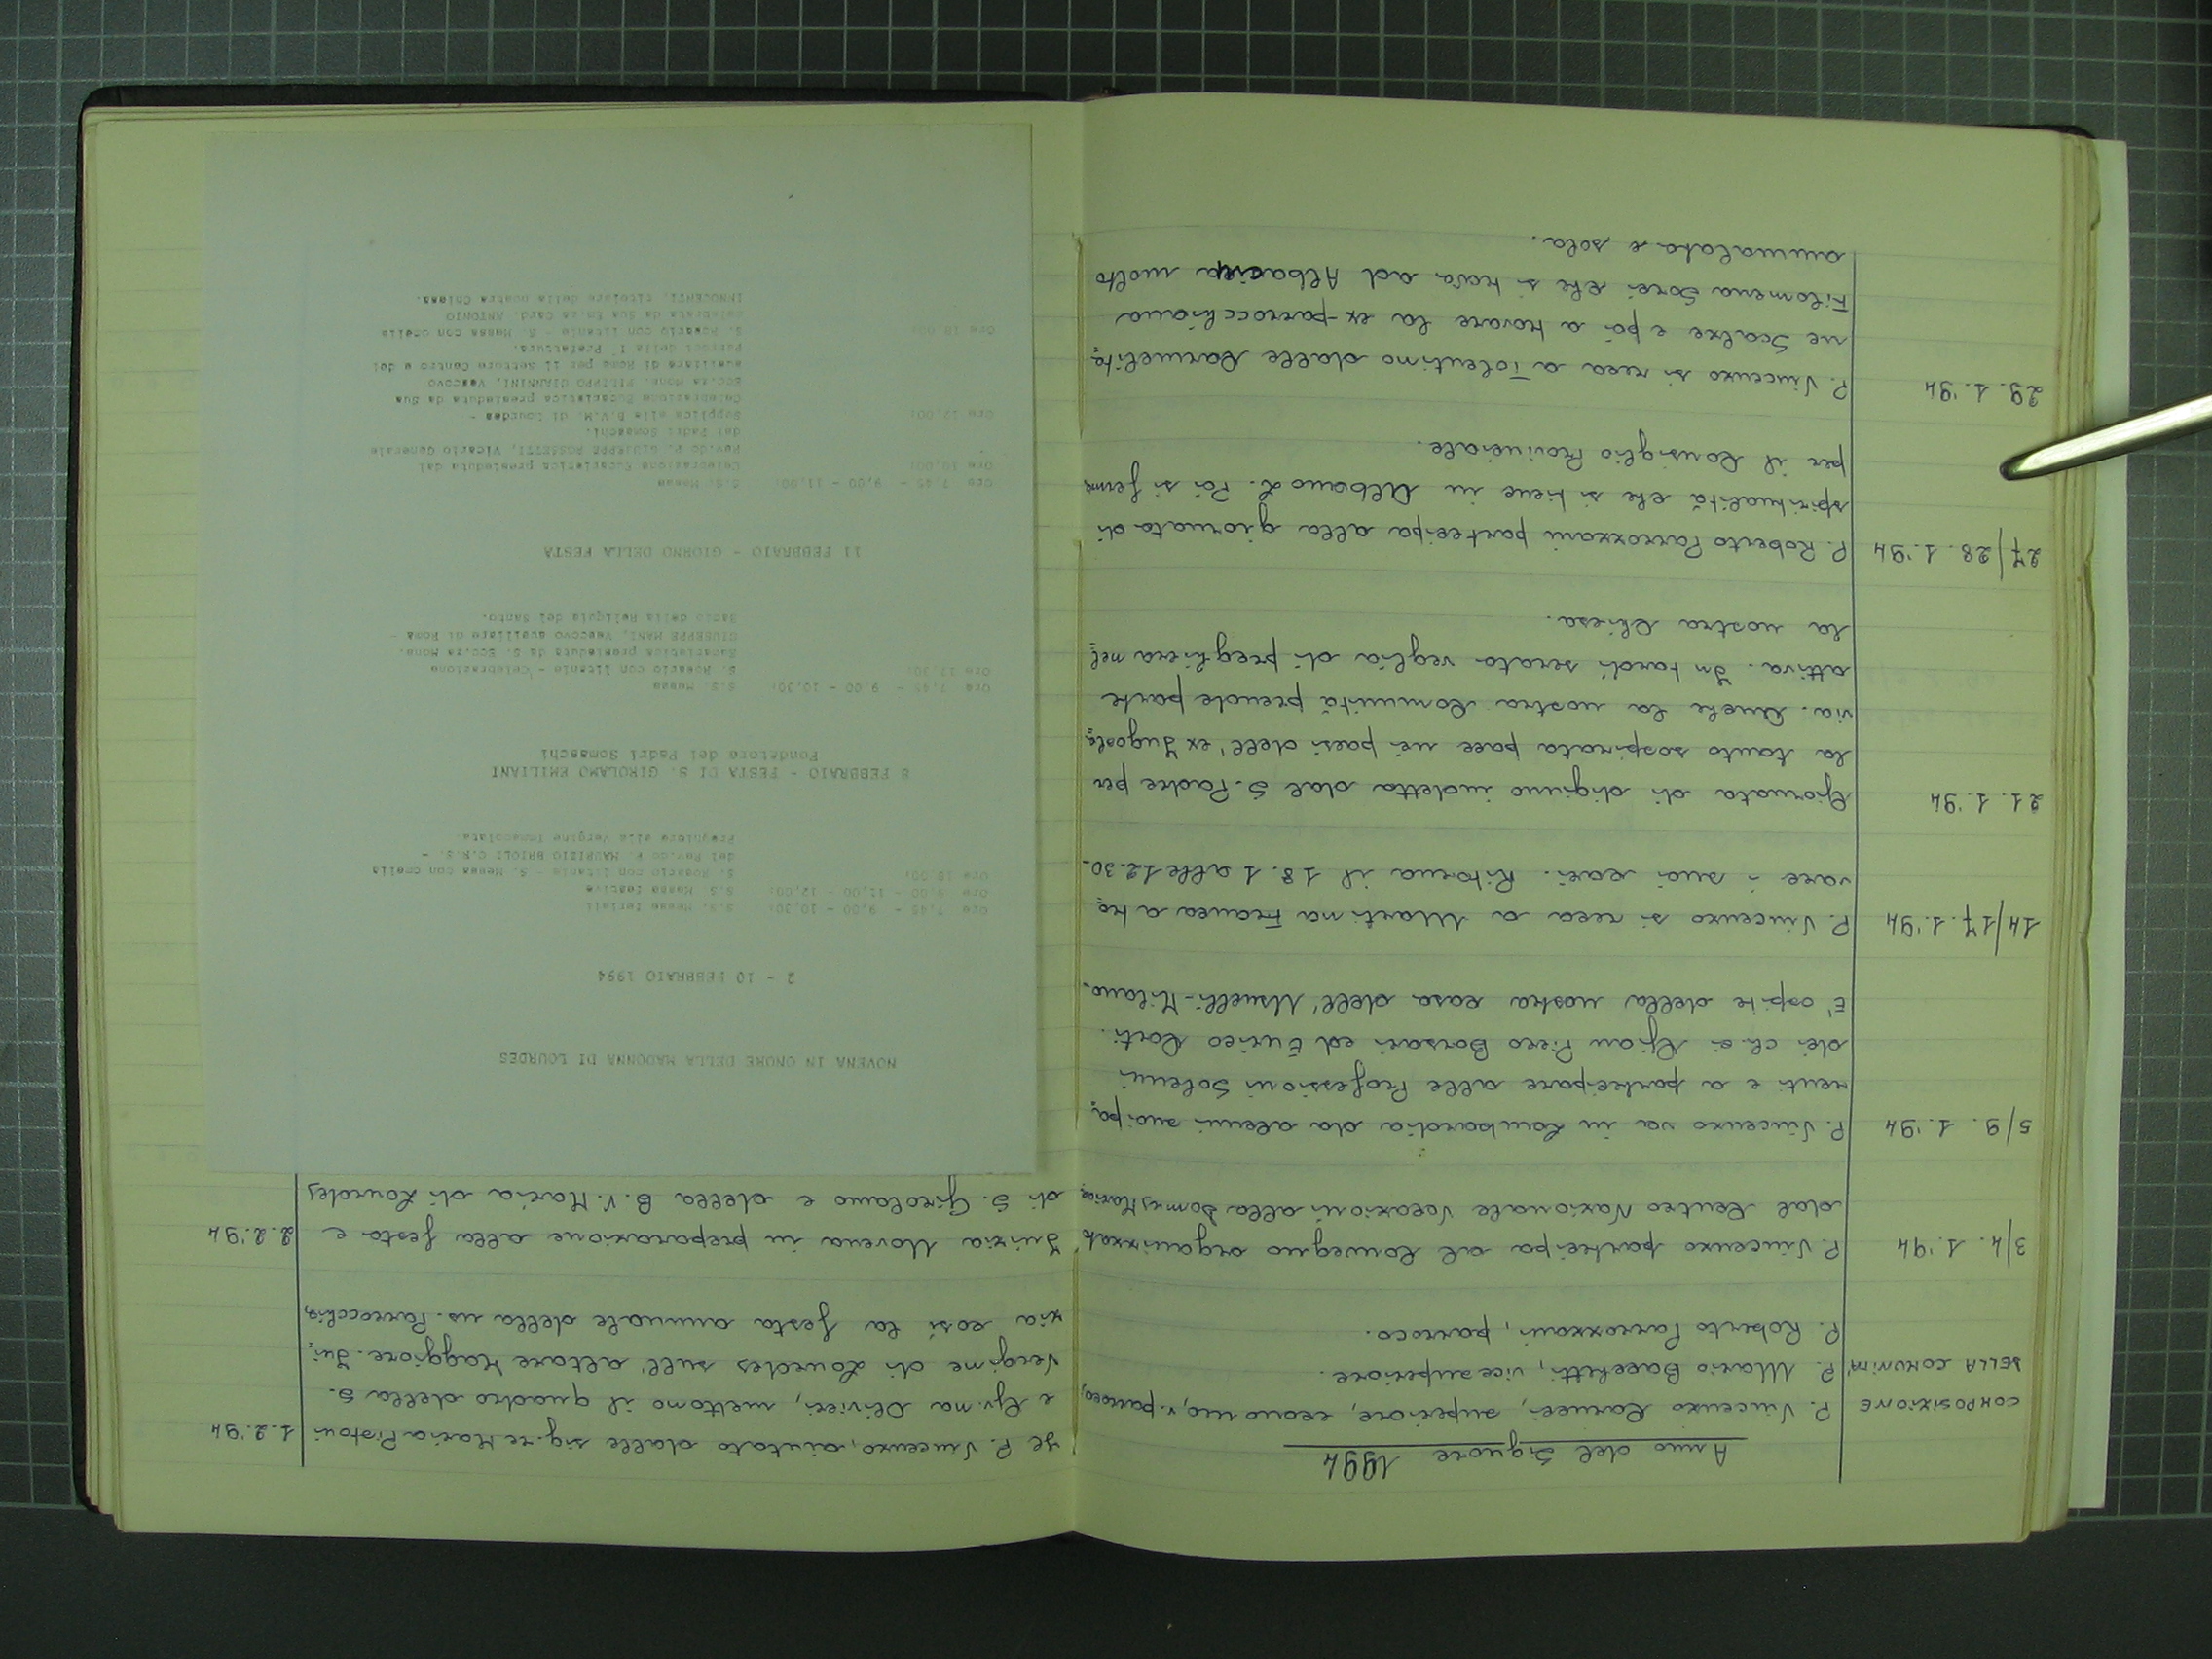 Anno del Signore 1994
COMPOSIZIONE P. Vincenzo Carucci, superiore, economo, v. parroco,
DELLA COMUNITÀ P. Mario Bacchetti, vicesuperiore.
P. Roberto Parrozzani, parroco.
3/4. 1.'94 P. Vincenzo partecipa al Convegno organizzato
dal Centro Nazionale Vocazioni alla Domus Mariae
5/9. 1.'94 P. Vincenzo va in Lombardia da alcuni suoi pa
renti e a partecipare alle Professioni Solenni
dei ch.ci Gian Piero Borsari ed Enrico Corti.
E' ospite della nostra casa dell'Usuelli-Milano.
14/17. 1.'94 P. Vincenzo si reca a Martina Franca a tro
vare i suoi cari. Ritorna il 18.1 alle 12.30.
21. 1.'94 Giornata di digiuno indetta dal S. Padre per
la tanto sospirata pace nei paesi dell'ex Jugosla
via. Anche la nostra Comunità prende parte
attiva. In tardi serata veglia di preghiera nel
la nostra Chiesa.
27/28. 1.'94 P. Roberto Parrozzani partecipa alla giornata di
spiritualità che si tiene in Albano L. Poi si ferma
per il Consiglio Provinciale.
29. 1.'94 P. Vincenzo si reca a Tolentino dalle Carmelita
ne Scalze e poi a trovare la ex-parrocchiana
Filomena Sorci che si trova ad Albacina molto
ammalata e sola.
1.2.'94 Il P. Vincenzo, aiutato dalle sig.re Maria Pistoni
e Gv.na Olivieri, mettono il quadro della S.
Vergine di Lourdes sull'altare Maggiore. Ini
zia così la festa annuale della ns. Parrocchia,
2.2.'94 Inizia Novena in preparazione alla festa e
di S. Girolamo e della B.V. Maria di Lourdes
NOVENA IN ONORE DELLA MADONNA DI LOURDES
2 - 10 FEBBRAIO 1994
Ore 7,45 - 9,00 - 10,30: S.S. Messe feriali
Ore 9,00 - 11,00 - 12,00: S.S. Messe festive
Ore 18,00: S. Rosario con litanie - S. Messa con omelia
del Rev.do P. MAURIZIO BRIOLI C.R.S. -
Preghiere alla Vergine Immacolata.
8 FEBBRAIO - FESTA DI S. GIROLAMO EMILIANI
Fondatore dei Padri Somaschi
Ore 7,45 - 9,00 - 10,30: S.S. Messe
Ore 17,30: S. Rosario con litanie - Celebrazione
Eucaristica presieduta da S. Ecc.za Mons.
GIUSEPPE MANI, Vescovo ausiliare di Roma -
Bacio della Reliquia del Santo.
11 FEBBRAIO - GIORNO DELLA FESTA
Ore 7,45 - 9,00 - 11,00: S.S. Messe
Ore 10,00: Celebrazione Eucaristica presieduta dal
Rev.do P. GIUSEPPE ROSSETTI, Vicario Generale
dei Padri Somaschi.
Ore 12,00: Supplica alla B.V.M. di Lourdes -
Celebrazione Eucaristica presieduta da Sua
Ecc.za Mons. FILIPPO GIANNINI, Vescovo
ausiliare di Roma per il Settore Centro e dei
Parroci della I^ Prefettura.
Ore 18,00: S. Rosario con litanie - S. Messa con omelia
celebrata da Sua Em.za Card. ANTONIO
INNOCENTI, titolare della nostra Chiesa.